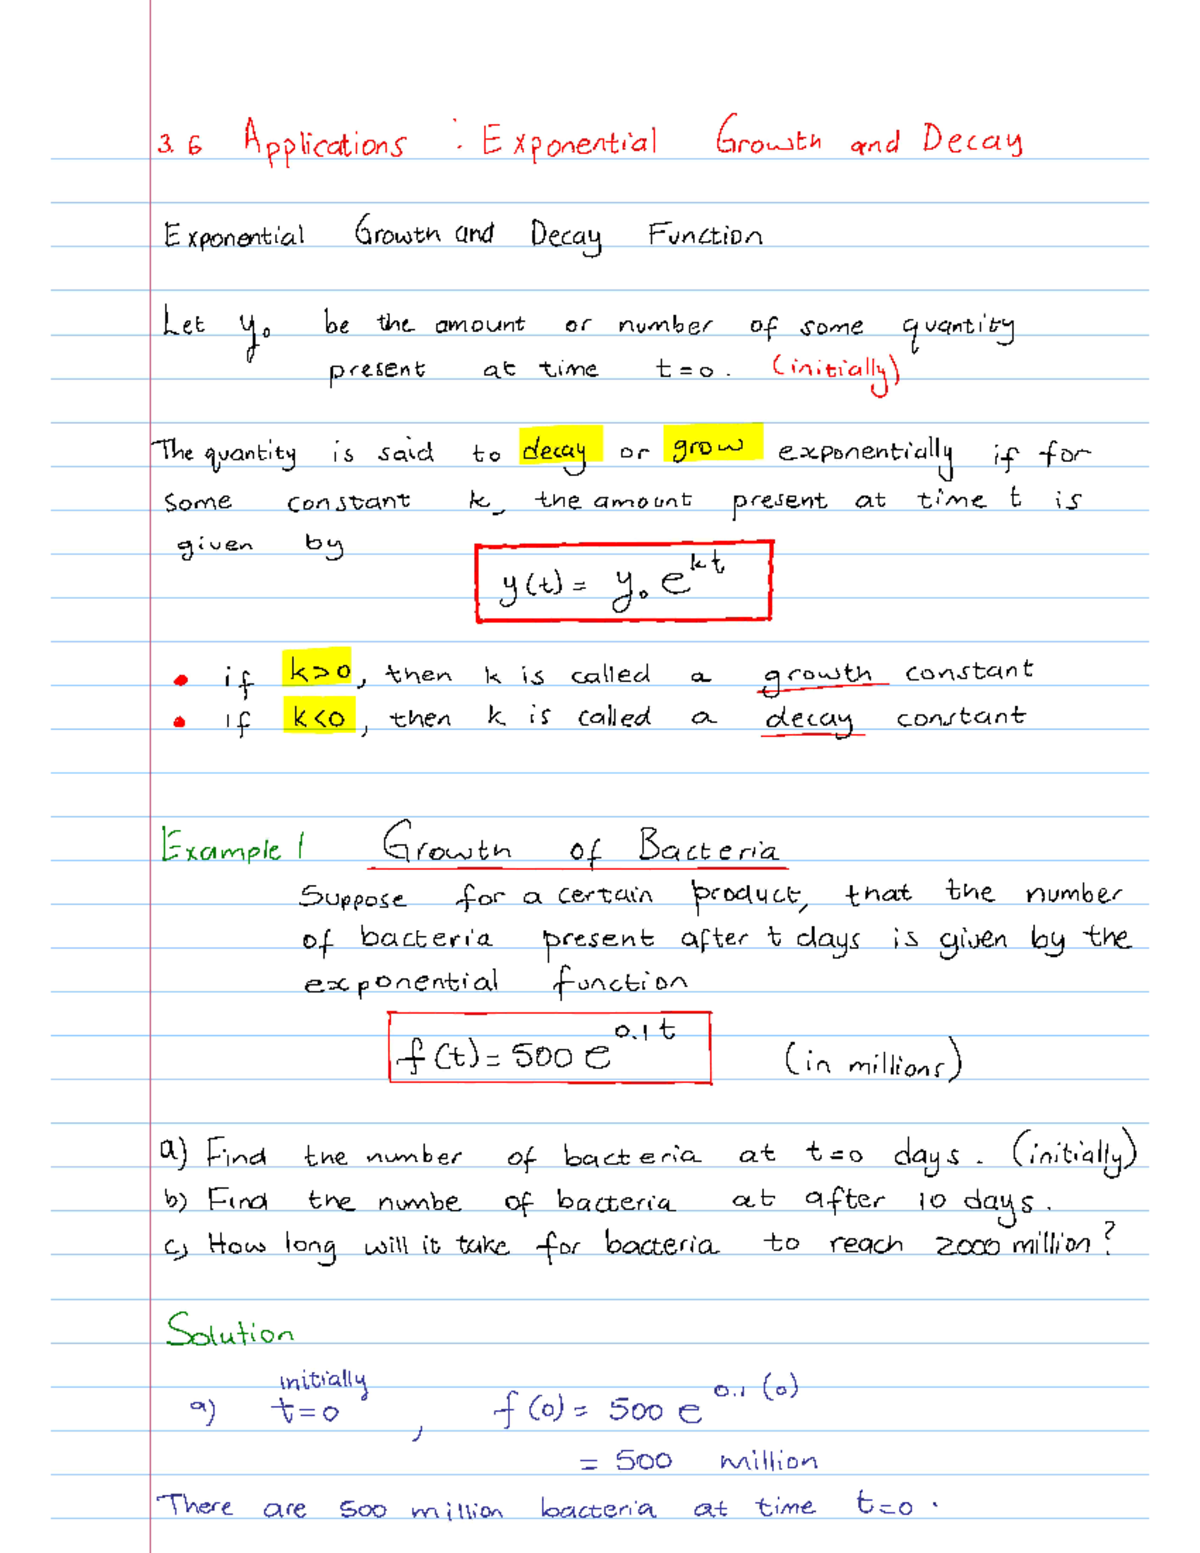 3.6 Applications : Exponential Growth and Decay
Exponential Growth and Decay Function
Let y₀ be the amount or number of some quantity
present at time t=0. (initially)
The quantity is said to decay or grow exponentially if for
some constant k, the amount present at time t is
given by
y(t) = y₀ e^{kt}
• if k>0, then k is called a growth constant
• If k<0, then k is called a decay constant
Example 1 Growth of Bacteria
Suppose for a certain product, that the number
of bacteria present after t days is given by the
exponential function
f(t) = 500 e^{0.1t} (in millions)
a) Find the number of bacteria at t=0 days. (initially)
b) Find the numbe of bacteria at after 10 days.
c) How long will it take for bacteria to reach 2000 million?
Solution
initially
a) t=0 , f(0) = 500 e^{0.1(0)}
= 500 million
There are 500 million bacteria at time t=0.